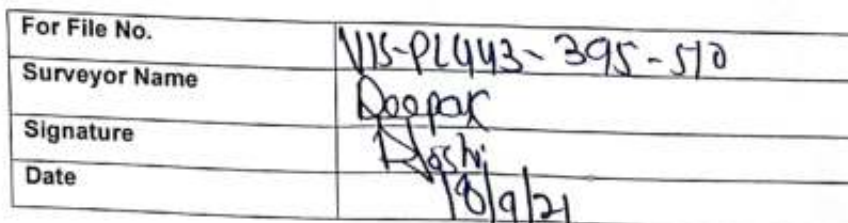 For File No. VIS-PL443-395-510
Surveyor Name Deepak
Signature Joshi
Date 18/9/21